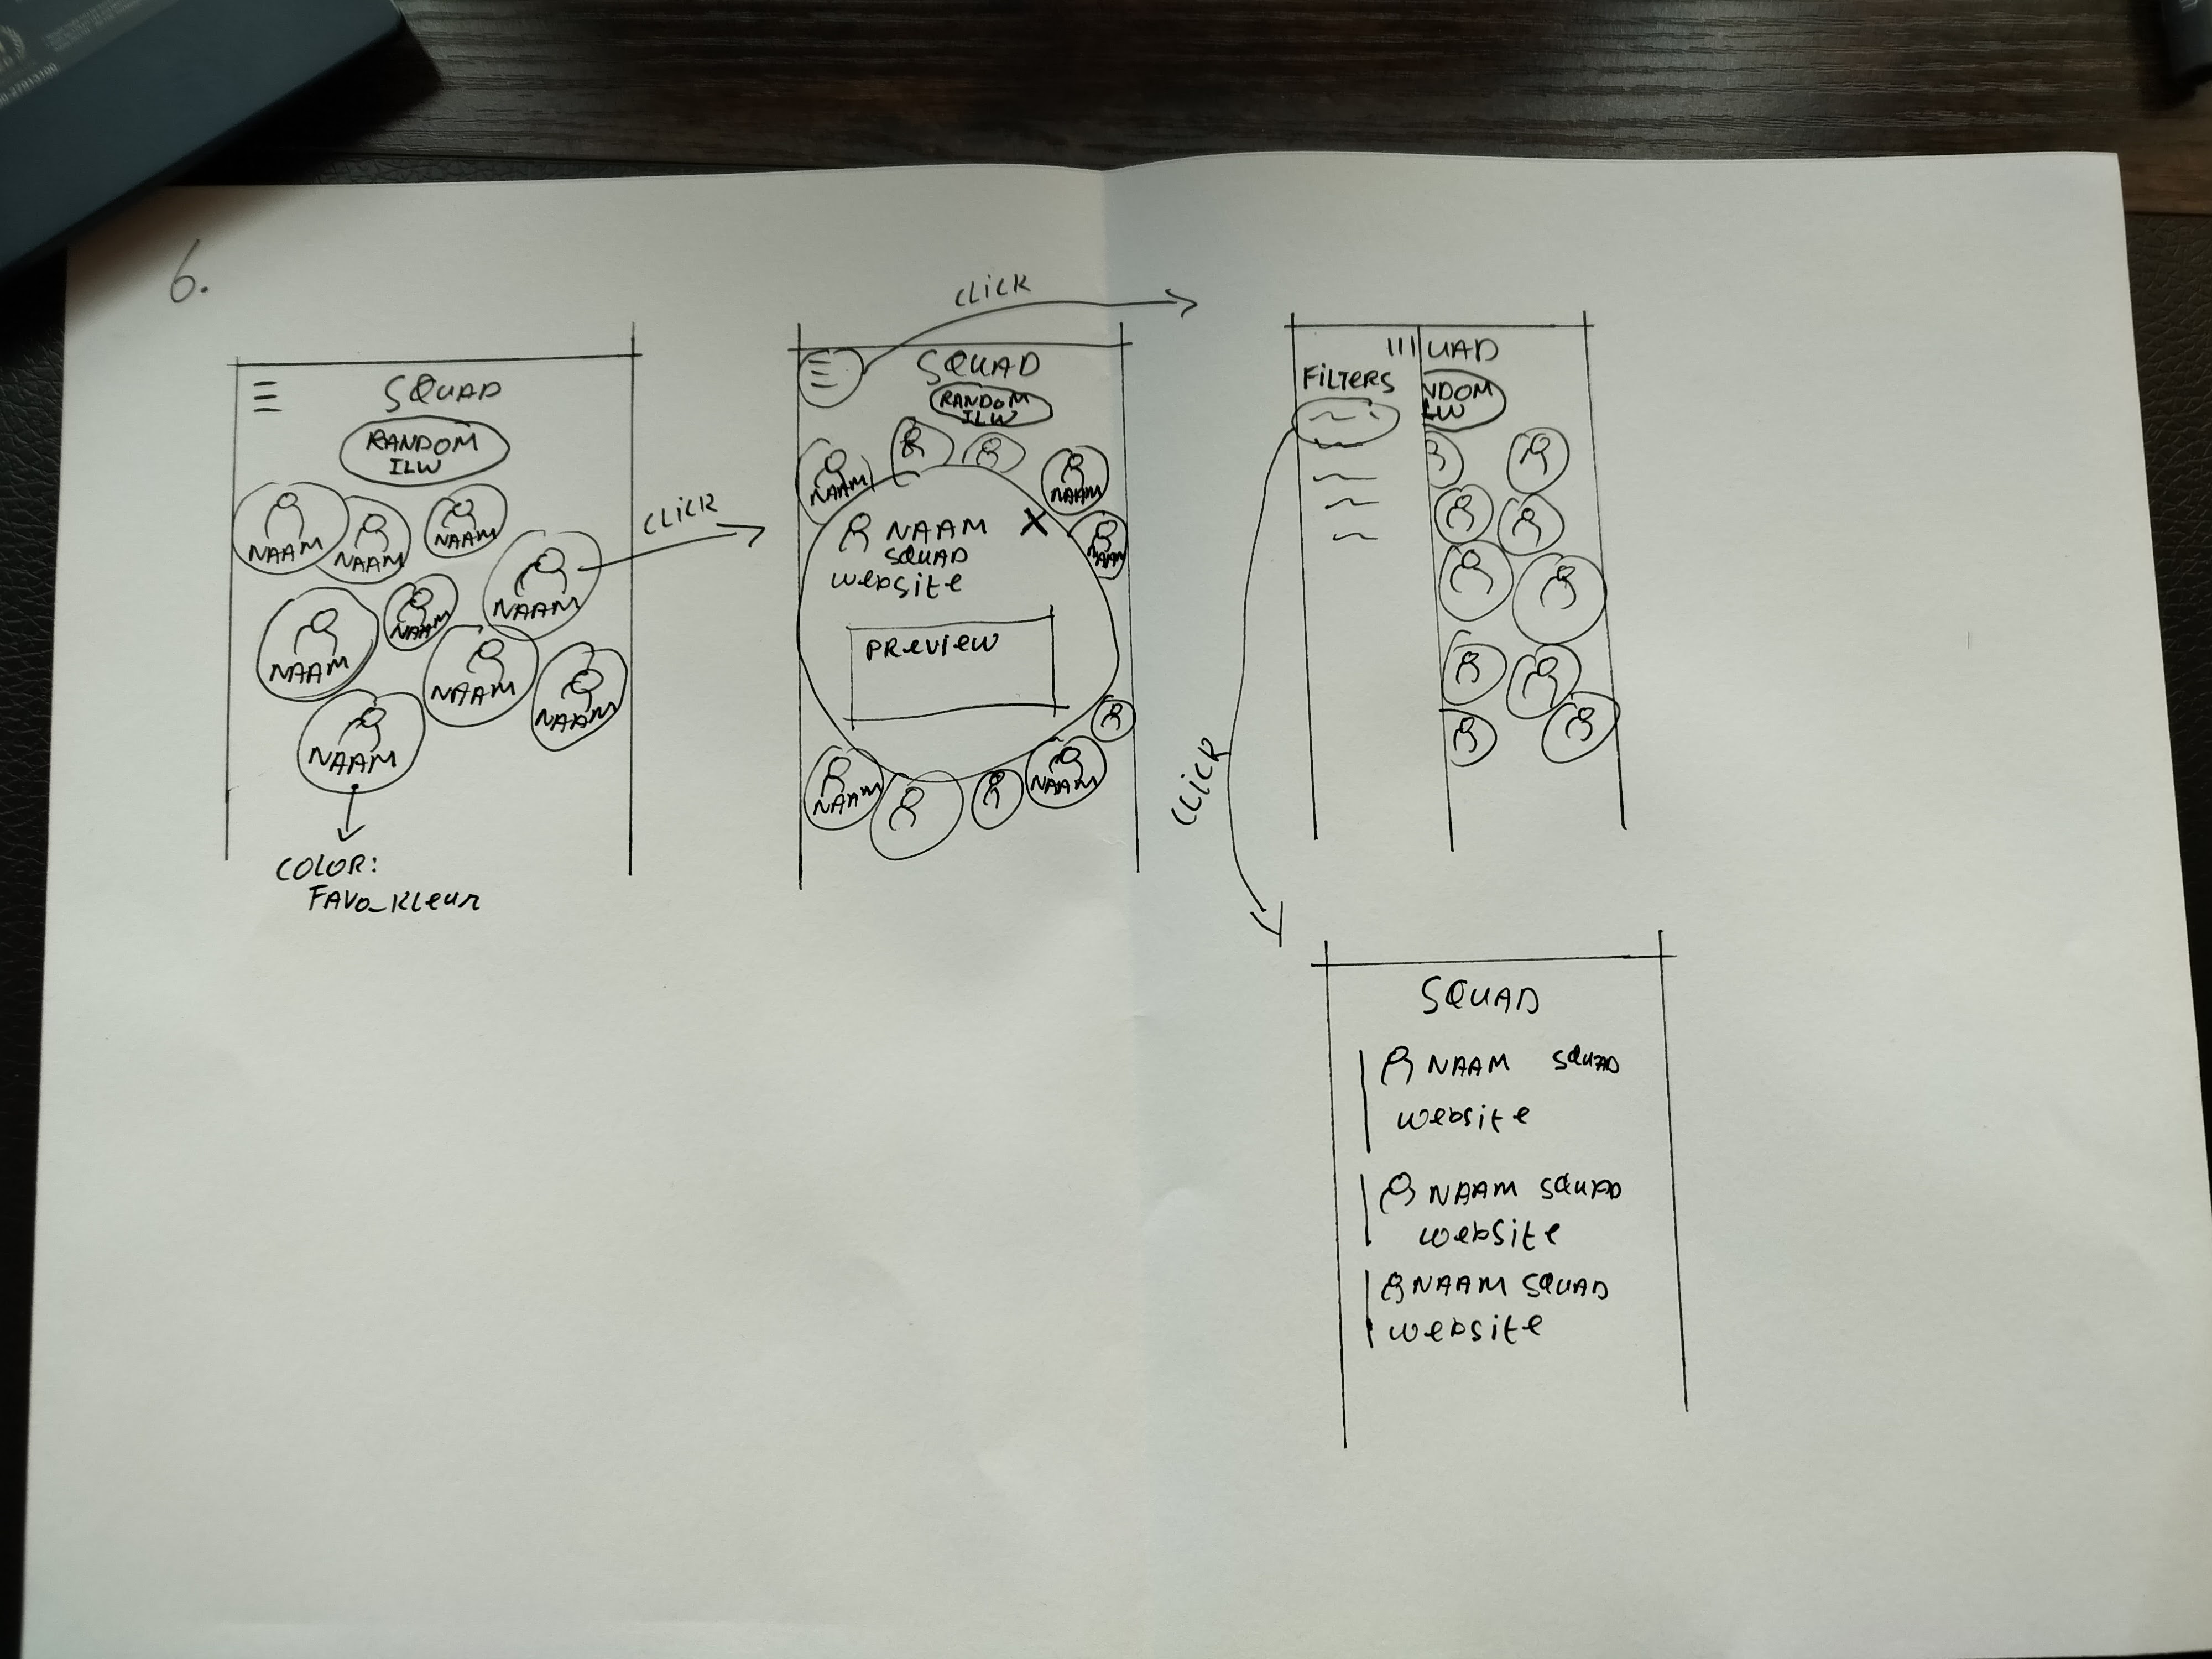 6.
SQUAD
RANDOM
ILW
NAAM
NAAM
NAAM
NAAM
NAAM
NAAM
NAAM
NAAM
NAAM
COLOR:
FAVO_KLEUR
CLICK
CLICK
SQUAD
RANDOM
ILW
NAAM
NAAM
NAAM
NAAM
SQUAD
website
X
PREVIEW
NAAM
NAAM
UAD
FILTERS
NDOM
LW
CLICK
SQUAD
NAAM SQUAD
website
NAAM SQUAD
website
NAAM SQUAD
website